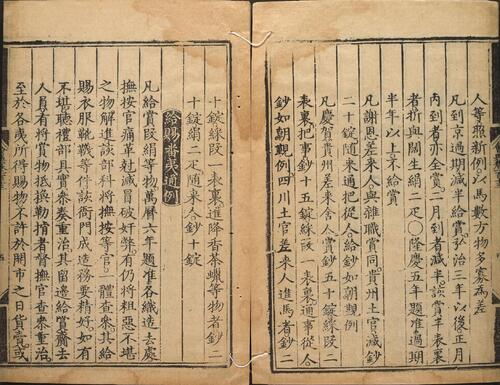 人等照新例以馬數方物多寡為差
凡到京過期減半給賞弘治三年以後正月
內到者亦全賞二月到者減半該賞半表裏
者折與闊生絹二疋○隆慶五年題准過期
半年以上末給賞
凡謝恩差來人與雜職賞同貴州土官減鈔
二十錠隨來通把從人給鈔如朝覲例
凡慶賀貴州差來舍人賞鈔五十錠綵叚二
表裏把事鈔十五錠綵叚一表裏通事從人
鈔如朝覲例四川土官差來人進馬者鈔二
十錠綵叚一表裏進降香茶蠟等物者鈔二
十錠絹二疋隨來人鈔十錠
給賜番夷通例
凡給賞叚絹等物萬曆六年題准各織造去處
撫按官痛革尅減冒破奸弊有仍將粗惡不堪
之物解進該部科將撫按等官一體查參其給
賜衣服靴韈等件該衙門成造務要精好如有
不堪聽禮部具實參奏重治其留邊給賞齎去
人員有將賞物抵換勒掯者督撫官查參重治
至於各夷所得賜物不許於開市之日貨賣或